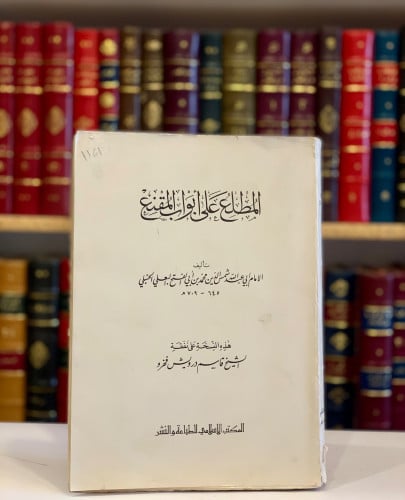 ١١٥١
المطلع على أبواب المقنع
تأليف
الإمام أبي عبد الله شمس الدين محمد بن أبي الفتح البعلي الحنبلي
٦٤٥ - ٧٠٩ هـ
هذه النسخة على نفقة
الشيخ قاسم درويش فخرو
المكتب الإسلامي للطباعة والنشر